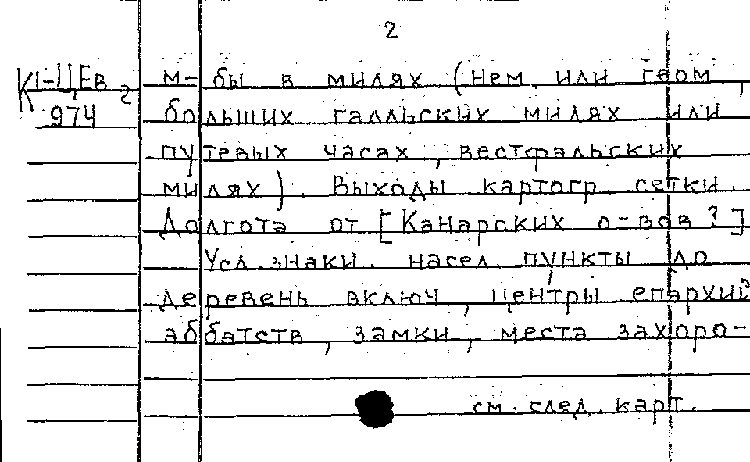 2
К1-ЦЕв 2
974
м-бы в милях (нем. или геом.,
больших галльских милях или
путевых часах, вестфальских
милях). Выходы картогр. сетки.
Долгота от [Канарских о-вов?]
Усл. знаки. насел. пункты до
деревень включ., центры епархий
аббатств, замки, места захоро-
см. след. карт.